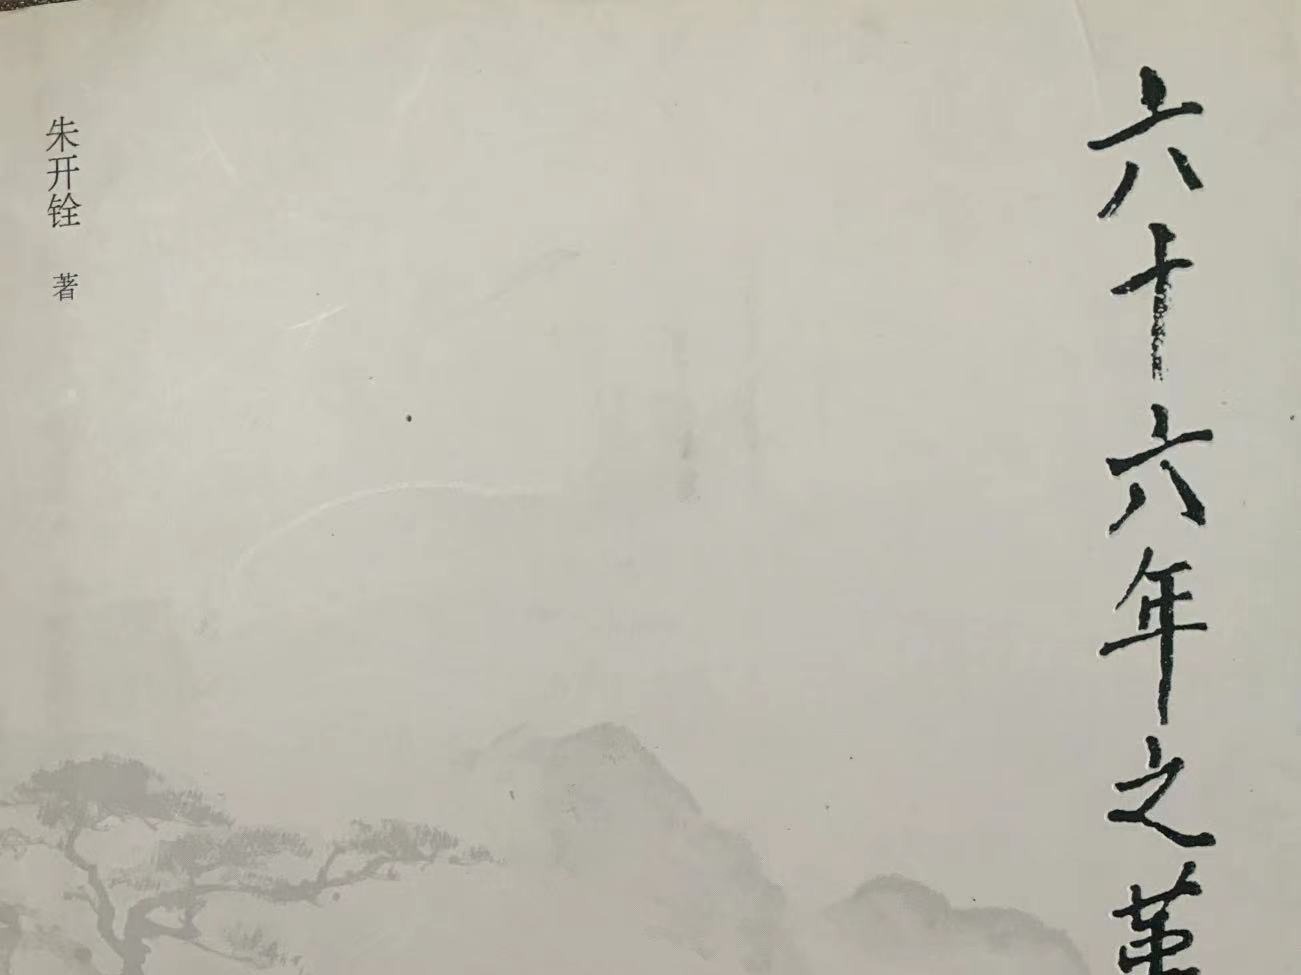 六十六年之革
朱开铨 著